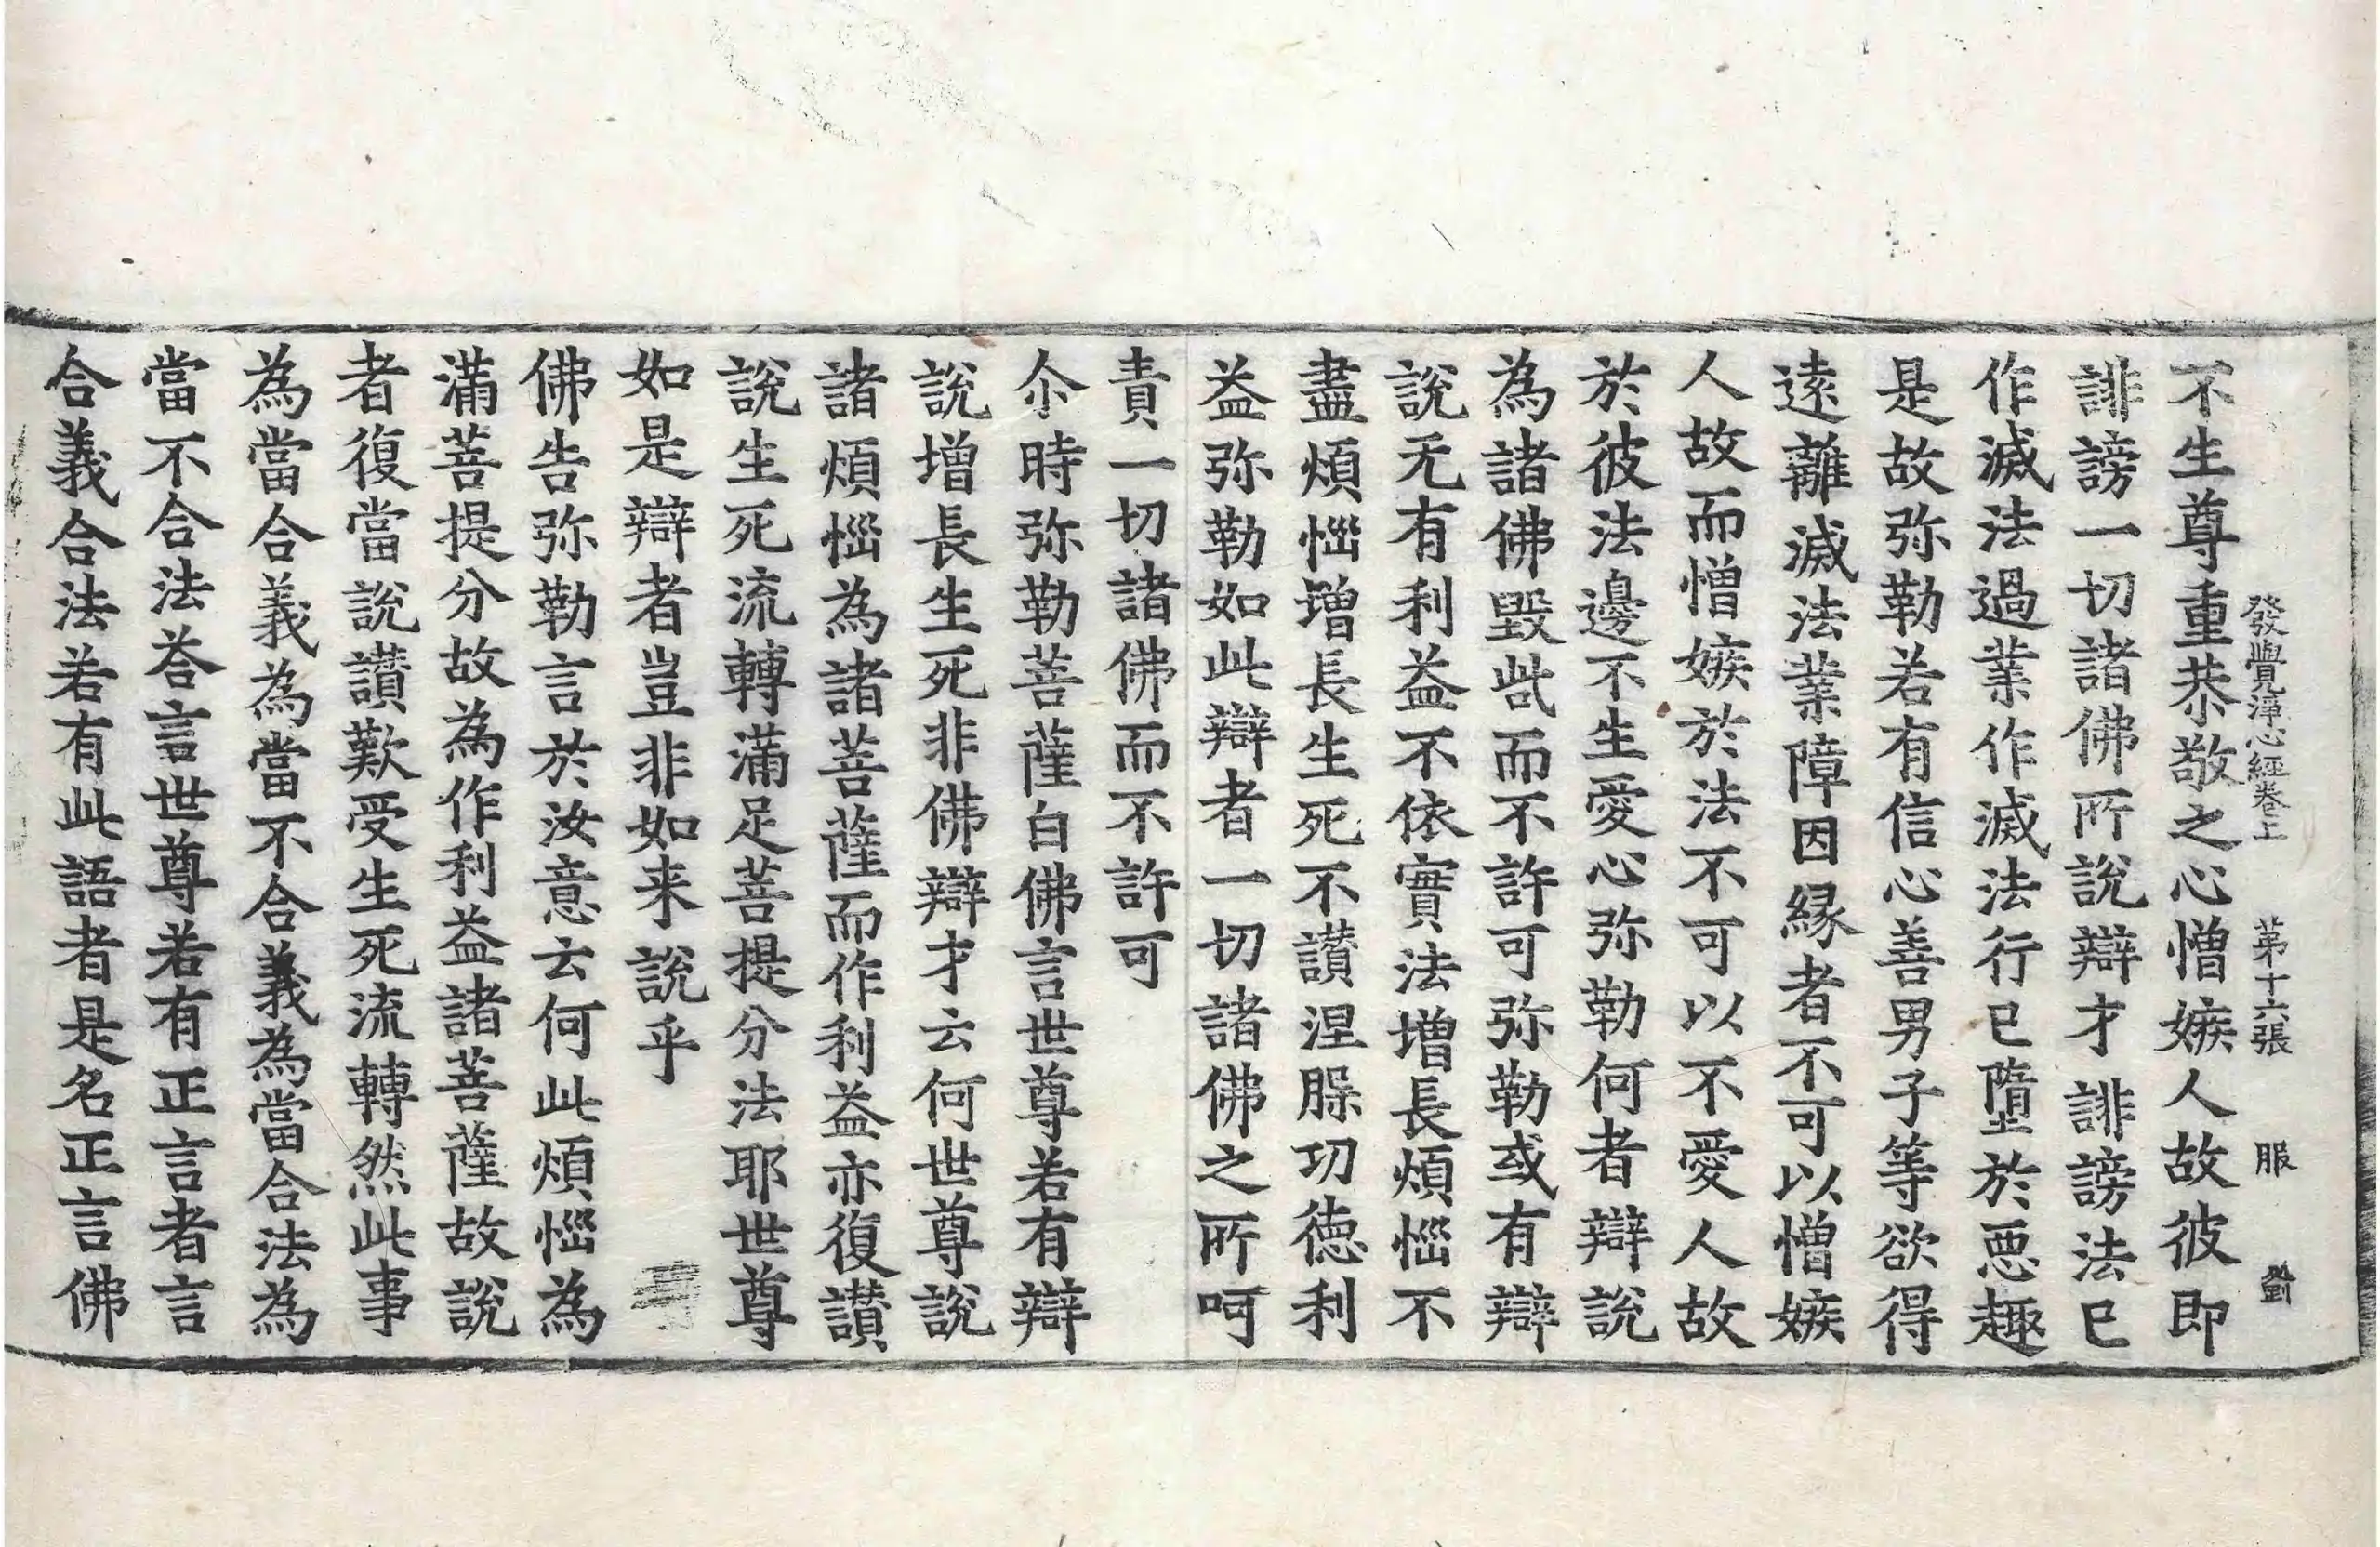 發覺淨心經卷上 第十六張 服
不生尊重恭敬之心憎嫉人故彼即
誹謗一切諸佛所說辯才誹謗法已
作滅法過業作滅法行已墮於惡趣
是故弥勒若有信心善男子等欲得
遠離滅法業障因緣者不可以憎嫉
人故而憎嫉於法不可以不愛人故
於彼法邊不生愛心弥勒何者辯說
為諸佛毀呰而不許可弥勒或有辯
說无有利益不依實法增長煩惱不
盡煩惱增長生死不讃涅槃功德利
益弥勒如此辯者一切諸佛之所呵
責一切諸佛而不許可
尒時弥勒菩薩白佛言世尊若有辯
說增長生死非佛辯才云何世尊說
諸煩惱為諸菩薩而作利益亦復讃
說生死流轉滿足菩提分法耶世尊
如是辯者豈非如来說乎
佛告弥勒言於汝意云何此煩惱為
滿菩提分故為作利益諸菩薩故說
者復當說讃歎受生死流轉然此事
為當合義為當不合義為當合法為
當不合法荅言世尊若有正言者言
合義合法若有此語者是名正言佛